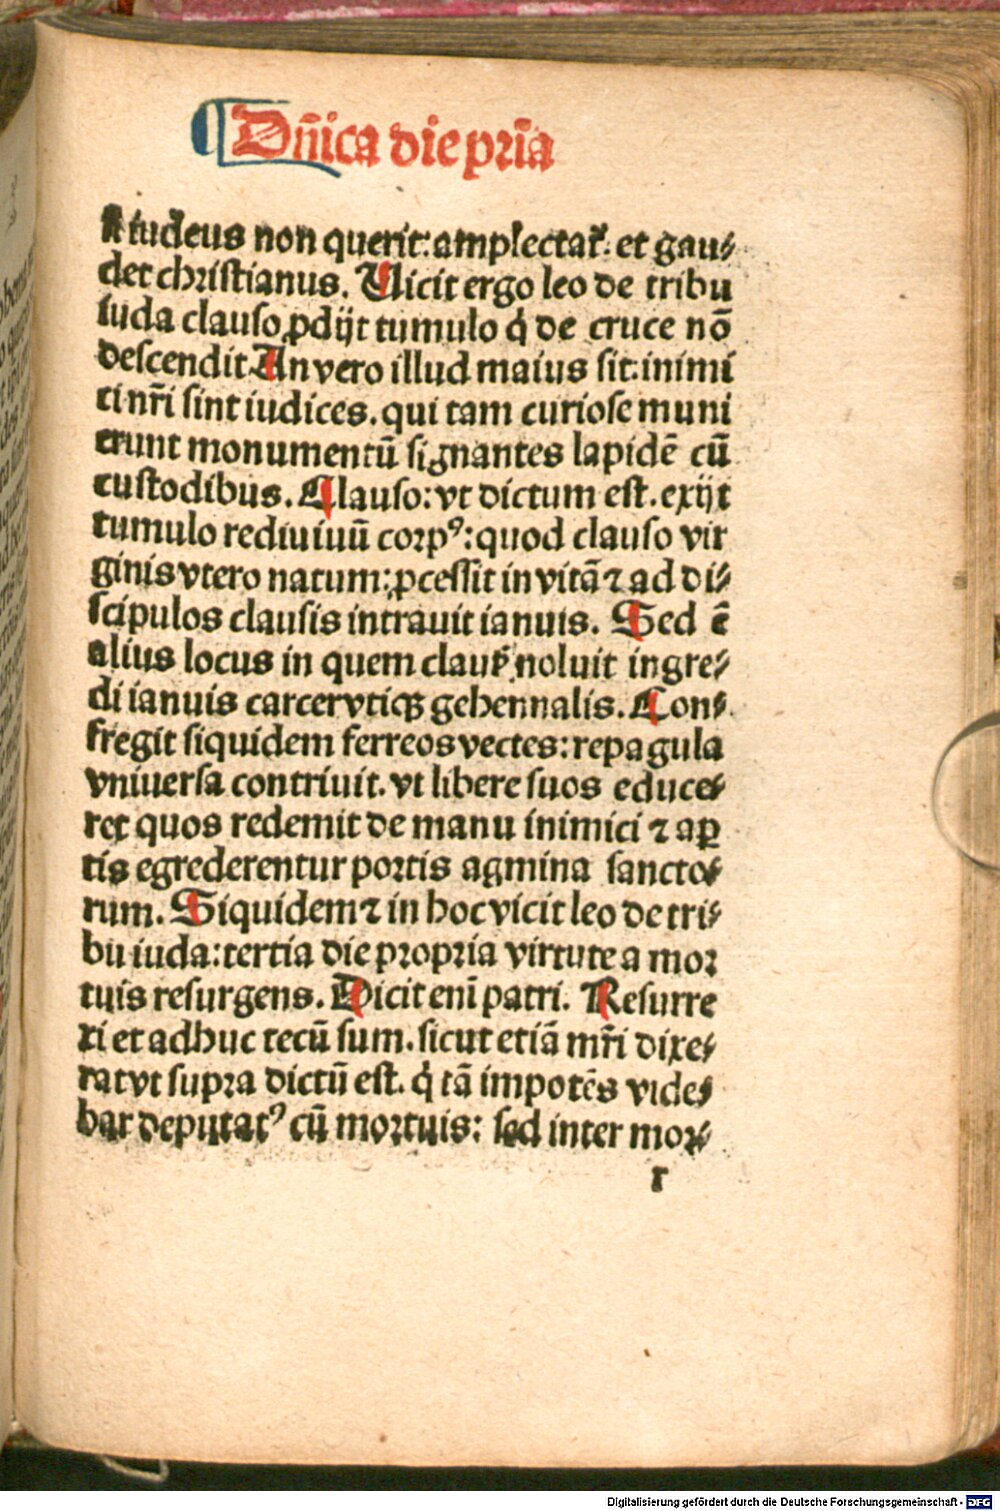 ¶ Dñica die pria̅
iudeus non querit: amplectat᷑: et gau⸗
det christianus. Uicit ergo leo de tribu
iuda clauso ꝓdijt tumulo q̇ de cruce nō
descendit An vero illud maius sit: inimi
ci nr̄i sint iudices. qui tam curiose muni
erunt monumentū signantes lapidē cū
custodibus. Clauso: vt dictum est. exijt
tumulo rediuiuū corpꝰ: quod clauso vir
ginis vtero natum: ꝓcessit in vitā ⁊ ad di⸗
scipulos clausis intrauit ianuis. Sed ē
alius locus in quem claus᷑ noluit ingre⸗
di ianuis carcer vtiqꝫ gehennalis. Con⸗
fregit siquidem ferreos vectes: repagula
vniuersa contriuit. vt libere suos educe⸗
ret quos redemit de manu inimici ⁊ aꝑ
tis egrederentur portis agmina sancto⸗
rum. Siquidem ⁊ in hoc vicit leo de tri⸗
bu iuda: tertia die propria virtute a mor
tuis resurgens. Dicit eni̅ patri. Resurre
xi et adhuc tecū sum. sicut etiā mr̄i dixe⸗
rat vt supra dictū est. q̇ tā impotēs vide⸗
bat deputatꝰ cū mortuis: sed inter mor⸗
r
Digitalisierung gefördert durch die Deutsche Forschungsgemeinschaft - DFG